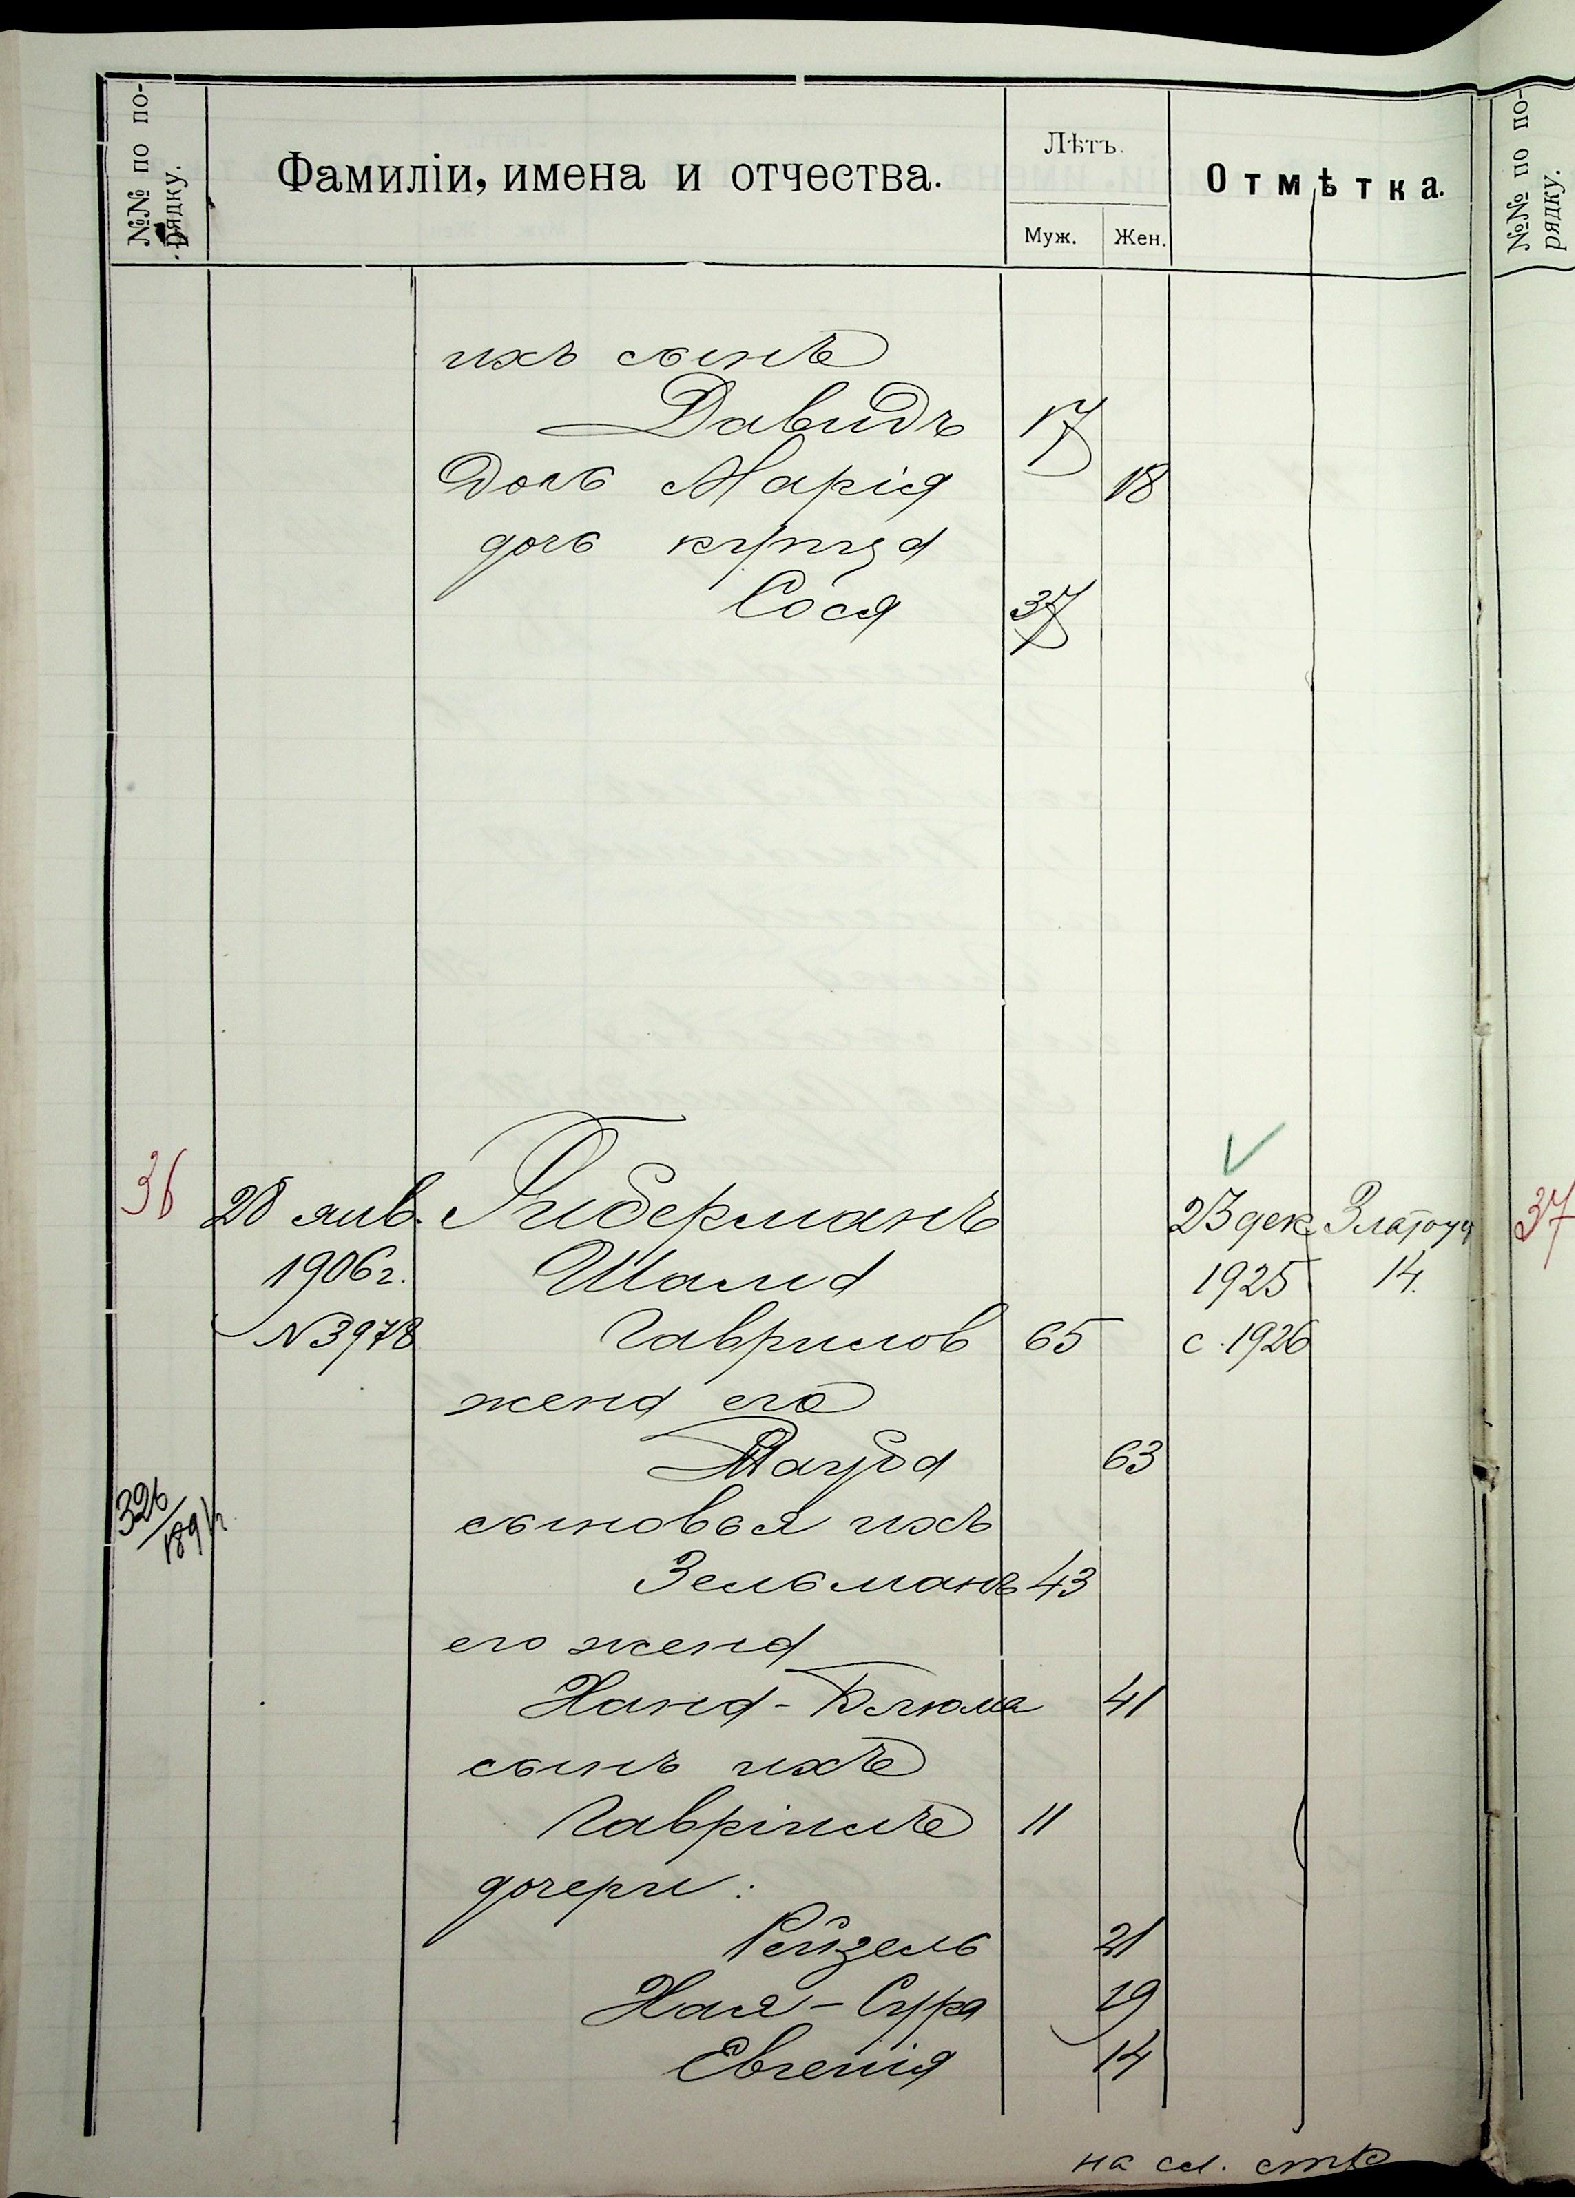 №№ по по-
рядку.
Фамиліи, имена и отчества.
Лѣтъ.
Муж.
Жен.
Отмѣтка.
№№ по по-
рядку.
ихъ сынъ
Давидъ 17
Дочь Марія 18
дочь купца
Сося 37
36 28 янв. Гиберманъ 23 дек. Златоуст 37
1906 г. Шалма 1925 14.
№ 3978 Гаврилов 65 с. 1926
жена его
Тауба 63
326/1891 г. сыновья ихъ
Зельманъ 43
его жена
Хана-Блюма 41
сынъ ихъ
Гавріилъ 11
дочери:
Рейзель 21
Хая-Сура 19
Евгенія 14
на сл. стр